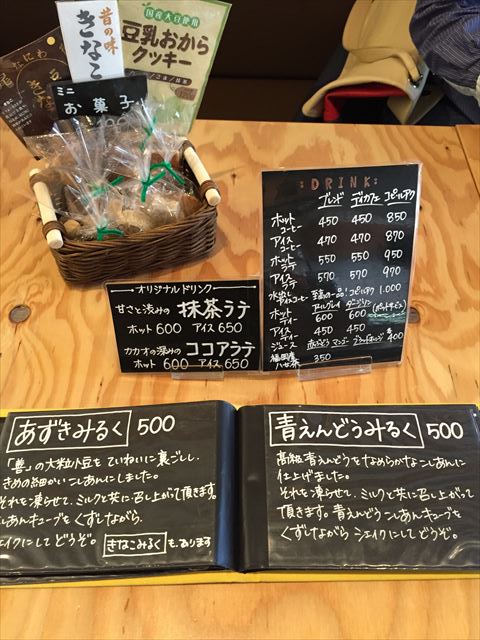 昔の味
きなこ
国産大豆使用
豆乳おから
クッキー
ミニ
お菓子
:DRINK:
ブレンド デカフェ コピ・ルアク
ホットコーヒー 450 450 850
アイスコーヒー 470 470 870
ホットラテ 550 550 950
アイスラテ 570 570 970
水出しアイスコーヒー 至高の一品! コピルアク 1.000
アールグレイ ダージリン (ポットサービス)
ホットティー 600 600
アイスティー 450 450
ジュース マンゴー ブラッドオレンジ 各400
福岡産八女茶 350
オリジナルドリンク
甘さと渋みの 抹茶ラテ
ホット 600 アイス 650
カカオの深みの ココアラテ
ホット 600 アイス 650
あずきみるく 500
「善」の大粒小豆をていねいに裏ごしし、
きめの細かいこしあんにしました。
それを凍らせて、ミルクと共に召し上がって頂きます。
しあんキューブをくずしながら、
シェイクにしてどうぞ。 きなこみるく も、あります
青えんどうみるく 500
高級青えんどうをなめらかなこしあんに
仕上げました。
それを凍らせて、ミルクと共に召し上がって
頂きます。青えんどうこしあんキューブを
くずしながら シェイクにしてどうぞ。